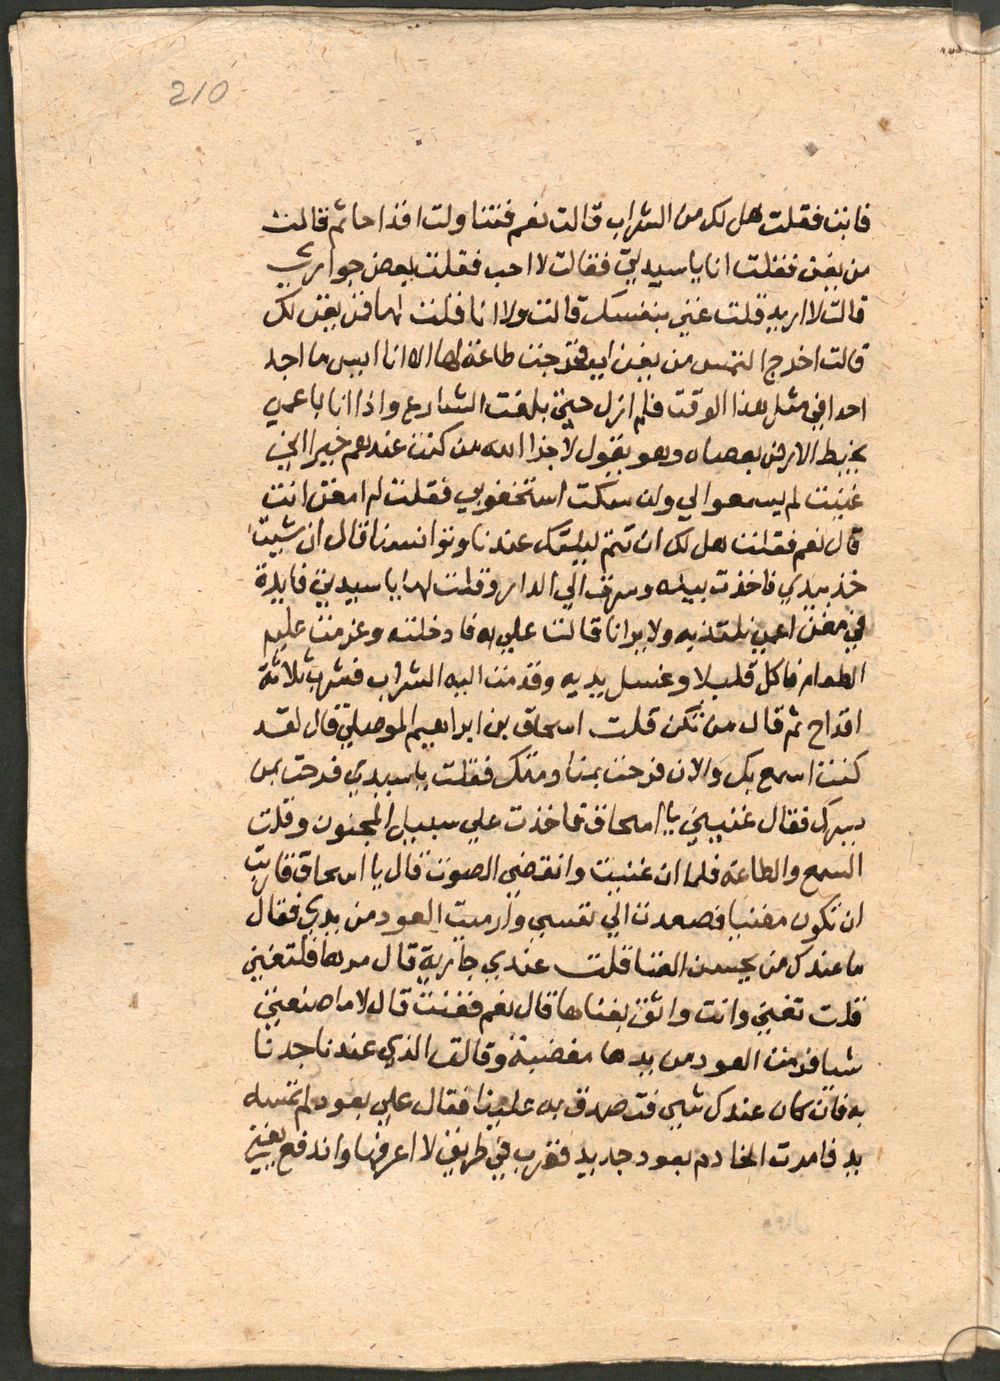 210
فابت فقلت هل لك من الشراب قالت نعم فتناولت اقداحا ثم قالت
من يغن فقلت انا يا سيدتي فقالت لا احب فقلت بعض جواري
قالت لا اريد قلت غني بنفسك قالت ولا انا قلت لها فمن يغن لك
قالت اخرج التمس من يغن لي فخرجت طاعة لها الا انا ايس ما اجد
احدا في مثل هذا الوقت فلم ازل حتي بلغت الشارع واذا انا باعمي
يخبط الارض بعصاه وهو يقول لا جزا الله من كنت عندهم خيرا ان
غنيت لم يسمعوا لي وان سكت استخفوا بي فقلت له امغن انت
قال نعم فقلت هل لك ان تتم ليلتك عندنا وتوانسنا قال ان شيت
خذ بيدي فاخذت بيده وسرت الي الدار وقلت لها يا سيدتي فايدة
في مغن اعمي نلتذ به ولا يرانا قالت علي به فادخلته وعزمت عليه
الطعام فاكل قليلا وغسل يديه وقدمت اليه الشراب فشرب ثلاثة
اقداح ثم قال من تكن قلت اسحاق بن ابراهيم الموصلي قال لقد
كنت اسمع بك والان فرحت بمنادمتك فقلت يا سيدي فرحت بمن
يسرك فقال غنيني يا اسحاق فاخذت علي سبيل المجنون وقلت
السمع والطاعة فلما ان غنيت وانقضي الصوت قال يا اسحاق قاربت
ان تكون مغنيا فصعدت الي نفسي وارميت العود من يدي فقال
ما عندك من يحسن الغنا قلت عندي جارية قال مرها فلتغني
قلت تغني وانت واثق بغناها قال نعم فغنت قال لا ما صنعتي
شيا فرمت العود من يدها مغضبة وقالت الذي عندنا جدنا
به فان كان عندك شي فتصدق به علينا فقال علي بعود لم تمسه
يد فامرت الخادم بعود جديد فضرب في طريق لا اعرفها واندفع يغني